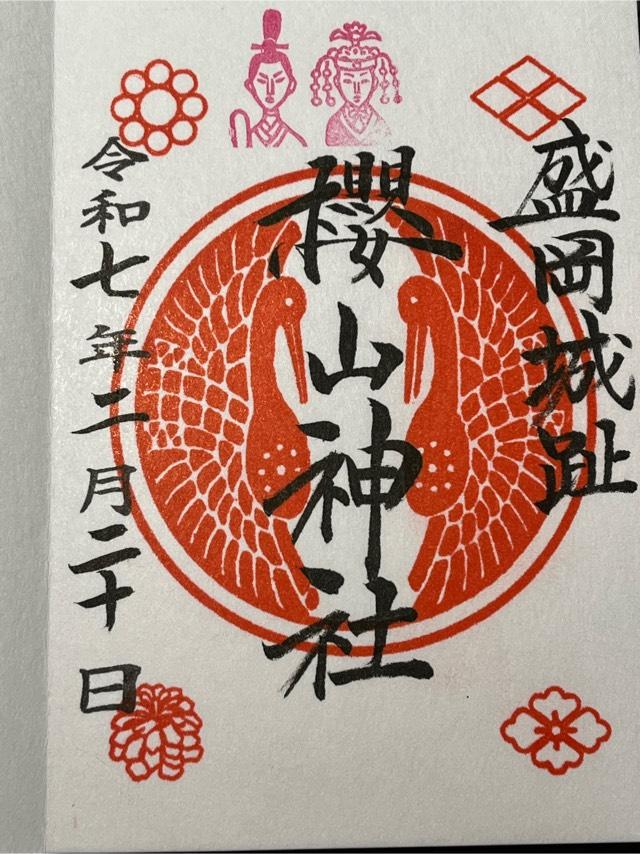 盛岡城趾
櫻山神社
令和七年二月二十日